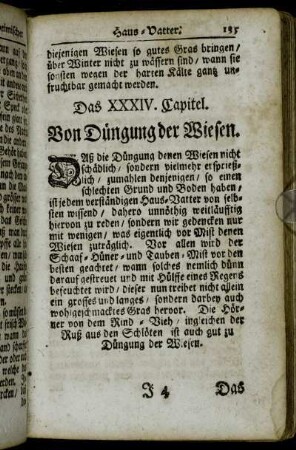 Haus-Vatter. 135
diejenigen Wiesen so gutes Gras bringen/
über Winter nicht zu wässern sind/ wann sie
sonsten wegen der harten Kälte gantz un-
fruchtbar gemacht werden.
Das XXXIV. Capitel.
Von Düngung der Wiesen.
Daß die Düngung denen Wiesen nicht
schädlich/ sondern vielmehr ersprieß-
lich/ zumahlen denjenigen/ so einen
schlechten Grund und Boden haben/
ist jedem verständigen Haus-Vatter von selb-
sten wissend/ dahero unnöthig weitläufftig
hiervon zu reden/ sondern wir gedencken nur
mit wenigen/ was eigentlich vor Mist denen
Wiesen zuträglich. Vor allen wird der
Schaaf-Hüner-und Tauben-Mist vor den
besten geachtet/ wann solches nemlich dünn
darauf gestreuet und mit Hülffe eines Regens
befeuchtet wird/ dieser nun treibet nicht allein
ein grosses und langes/ sondern darbey auch
wohlgeschmacktes Gras hervor. Die Hör-
ner von dem Rind-Vieh/ ingleichen der
Ruß aus den Schlöten ist auch gut zu
Düngung der Wiesen.
J 4 Das